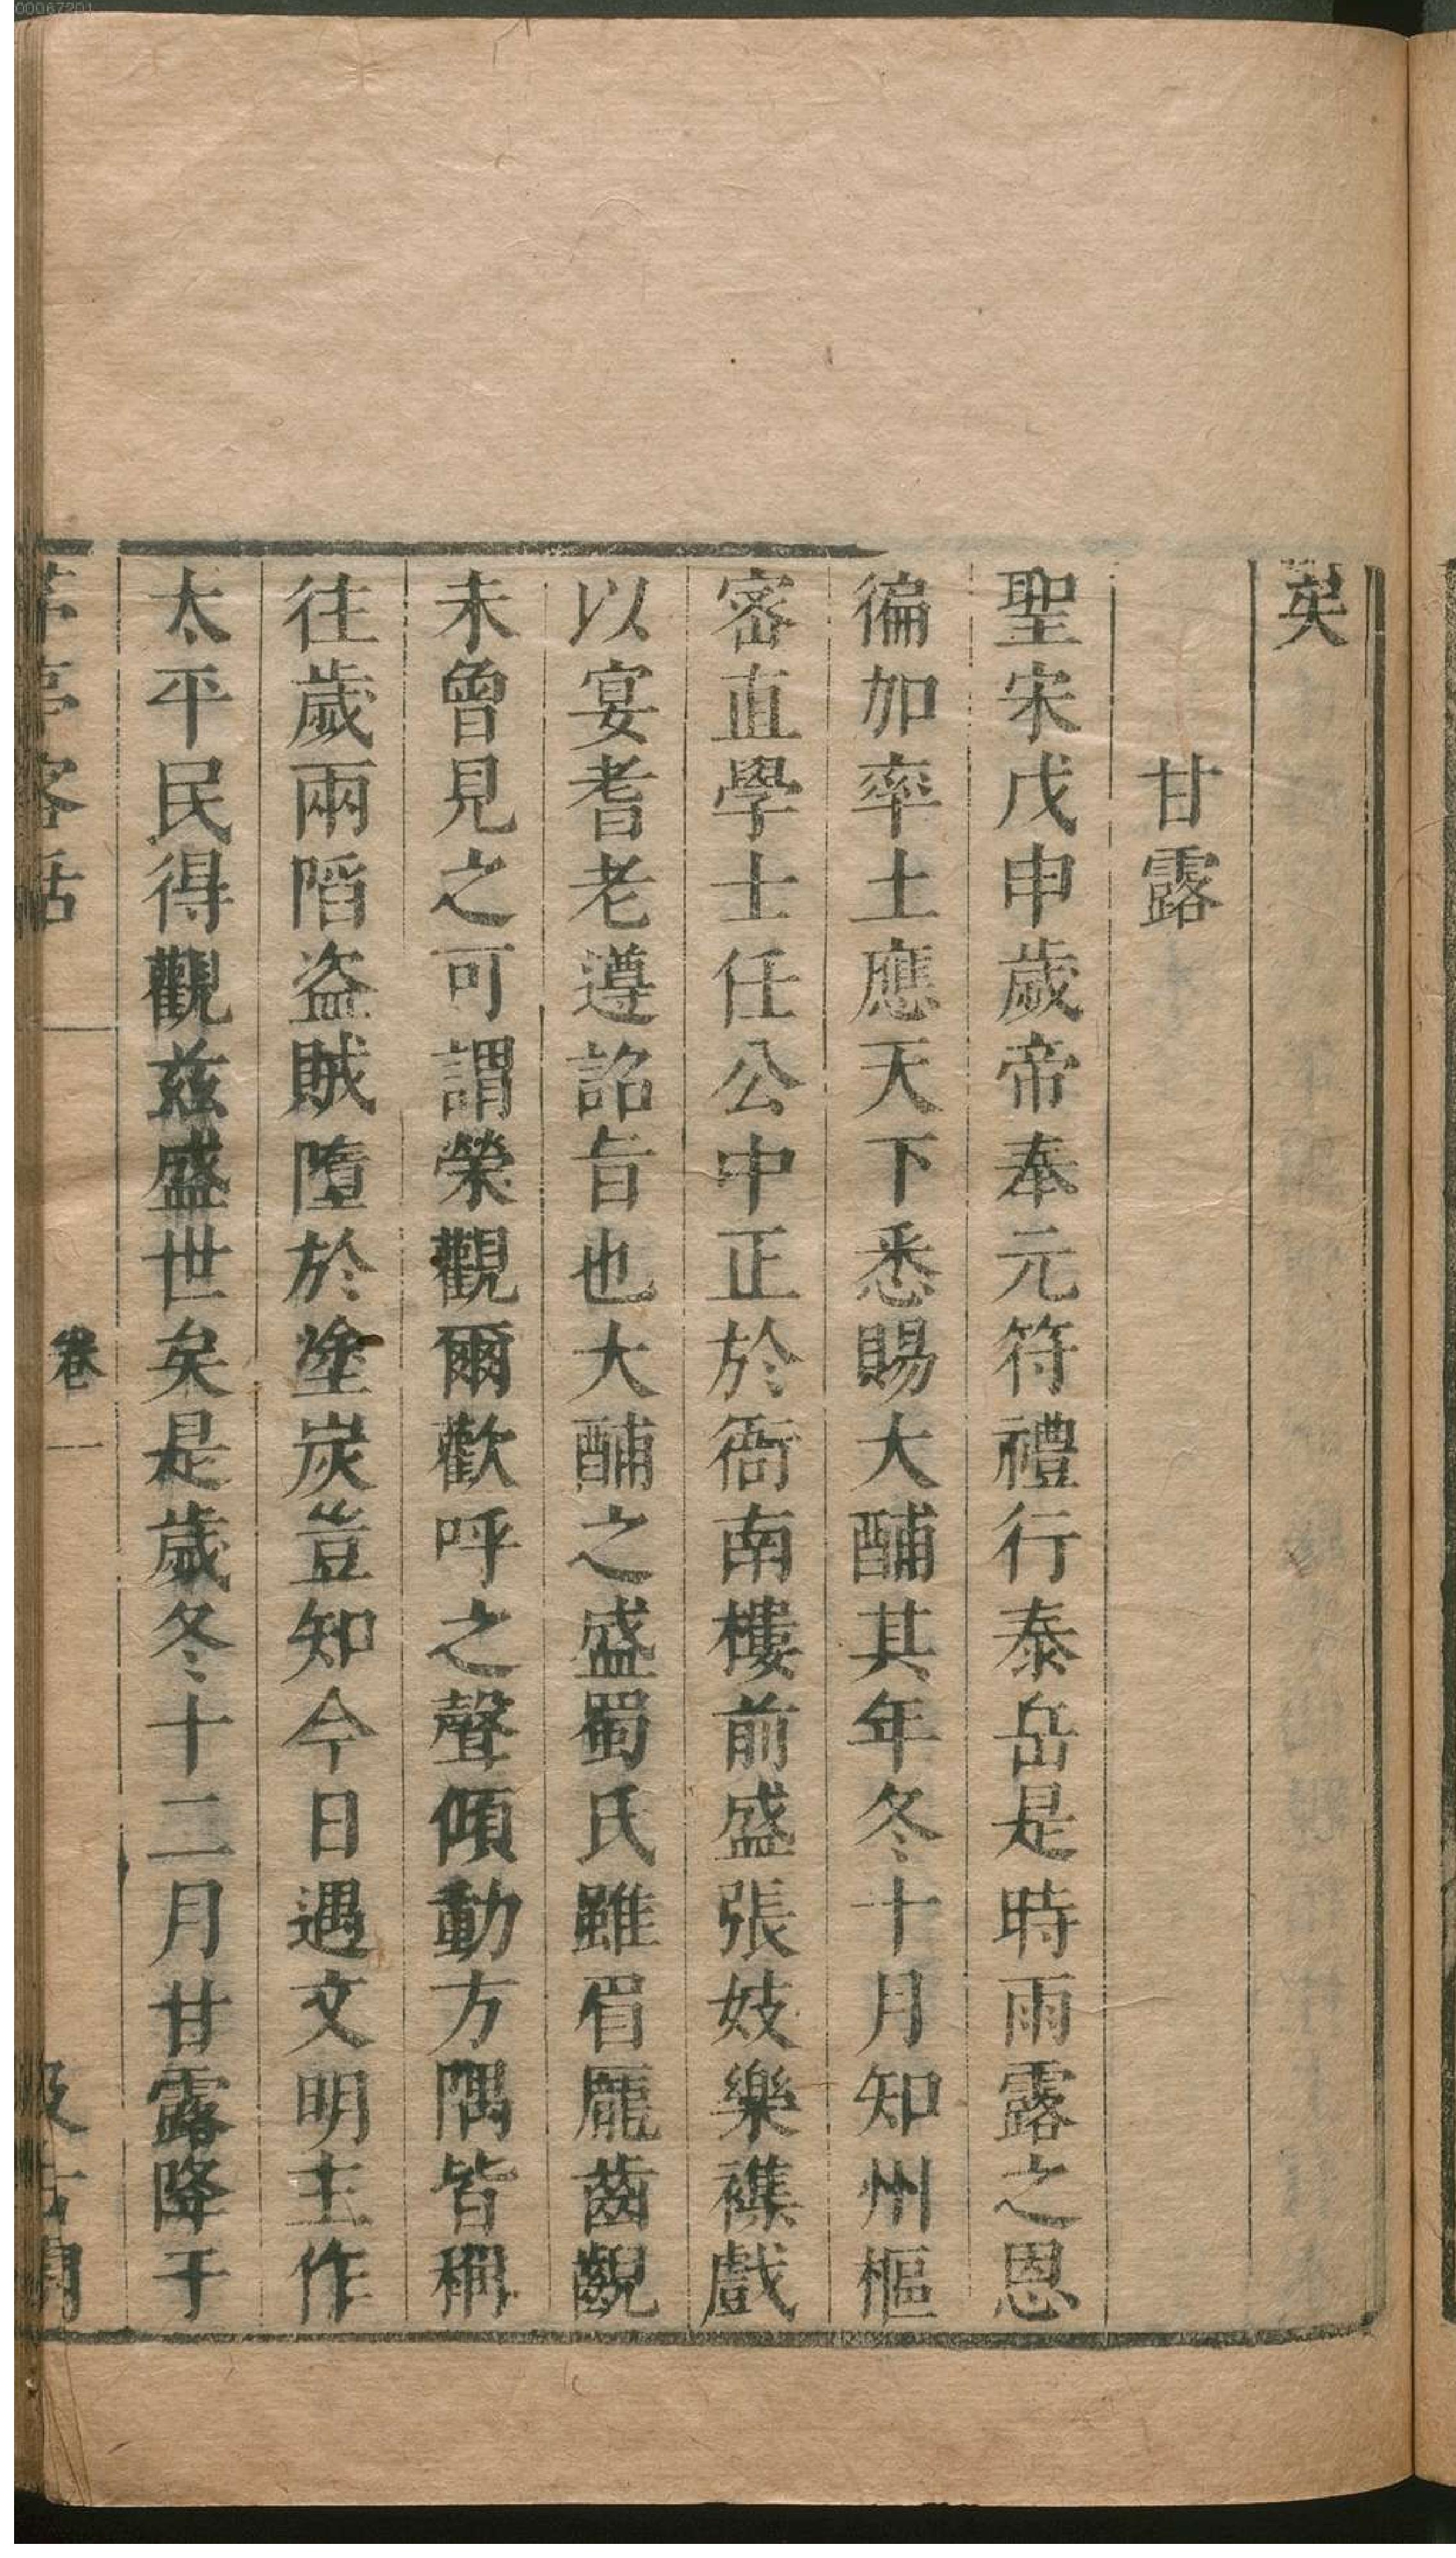 矣
甘露
聖宋戊申歲帝奉元符禮行泰岳是時雨露之恩
徧加率土應天下悉賜大酺其年冬十月知州樞
宻直學士任公中正於衙南樓前盛張妓樂襍戲
以宴耆老遵詔旨也大酺之盛蜀民雖眉厖齒齯
未曾見之可謂榮觀爾歡呼之聲傾動方隅皆稱
往歲兩陷盜賊墮於塗炭豈知今日遇文明主作
太平民得觀兹盛世矣是歲冬十二月甘露降于
茅亭客話
卷一
汲古閣
00067201